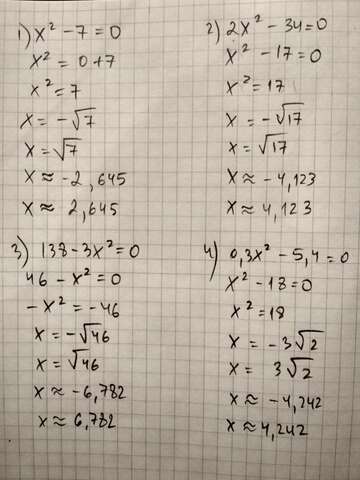 1) x² - 7 = 0
x² = 0 + 7
x² = 7
x = -√7
x = √7
x ≈ -2,645
x ≈ 2,645
2) 2x² - 34 = 0
x² - 17 = 0
x² = 17
x = -√17
x = √17
x ≈ -4,123
x ≈ 4,123
3) 138 - 3x² = 0
46 - x² = 0
-x² = -46
x = -√46
x = √46
x ≈ -6,782
x ≈ 6,782
4) 0,3x² - 5,4 = 0
x² - 18 = 0
x² = 18
x = -3√2
x = 3√2
x ≈ -4,242
x ≈ 4,242